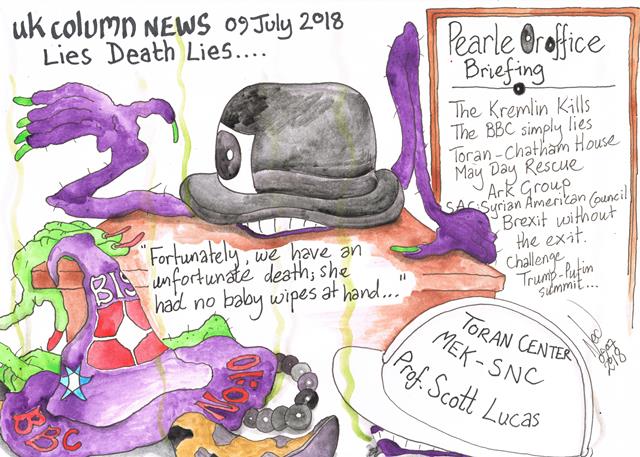 uk column NEWS 09 July 2018
Lies Death Lies....
Pearle Oroffice
Briefing
The Kremlin Kills
The BBC simply lies
Toran-Chatham House
May Day Rescue
Ark Group
SAC: Syrian American Council
Brexit without
the exit.
Challenge
Trump-Putin
summit...
"Fortunately, we have an
unfortunate death; she
had no baby wipes at hand..."
BIS
BBC
TORAN CENTER
MEK-SNC
Prof. Scott Lucas
2018